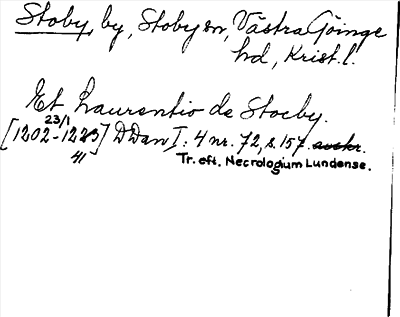 Stoby, by, Stoby sn, Västra Göinge
hd, Krist. l.
Et Laurentio de Stoeby.
23/1
[1202-1223] DDan I: 4 nr. 72, s. 157 avskr.
41
Tr. eft. Necrologium Lundense.